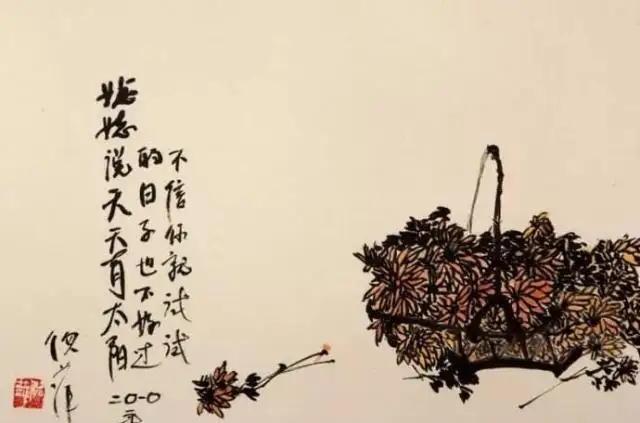 姥姥说天天有太阳
的日子也不好过
不信你就试试
二〇一〇
倪萍